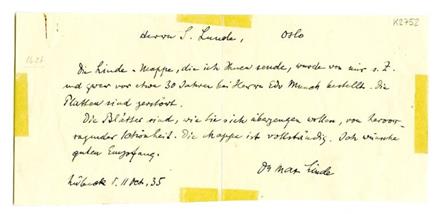 Herrn S. Lunde, Oslo
K2752
Die Linde-Mappe, die ich Ihnen sende, wurde von mir s. Z.
und zwar vor etwa 30 Jahren bei Herrn Edv Munch bestellt. Die
Platten sind zerstört.
Die Blätter sind, wie Sie sich überzeugen wollen, von hervor-
ragender Schönheit. Die Mappe ist vollständig. Ich wünsche
guten Empfang.
Dr Max Linde
Lübeck 11 Oct. 35